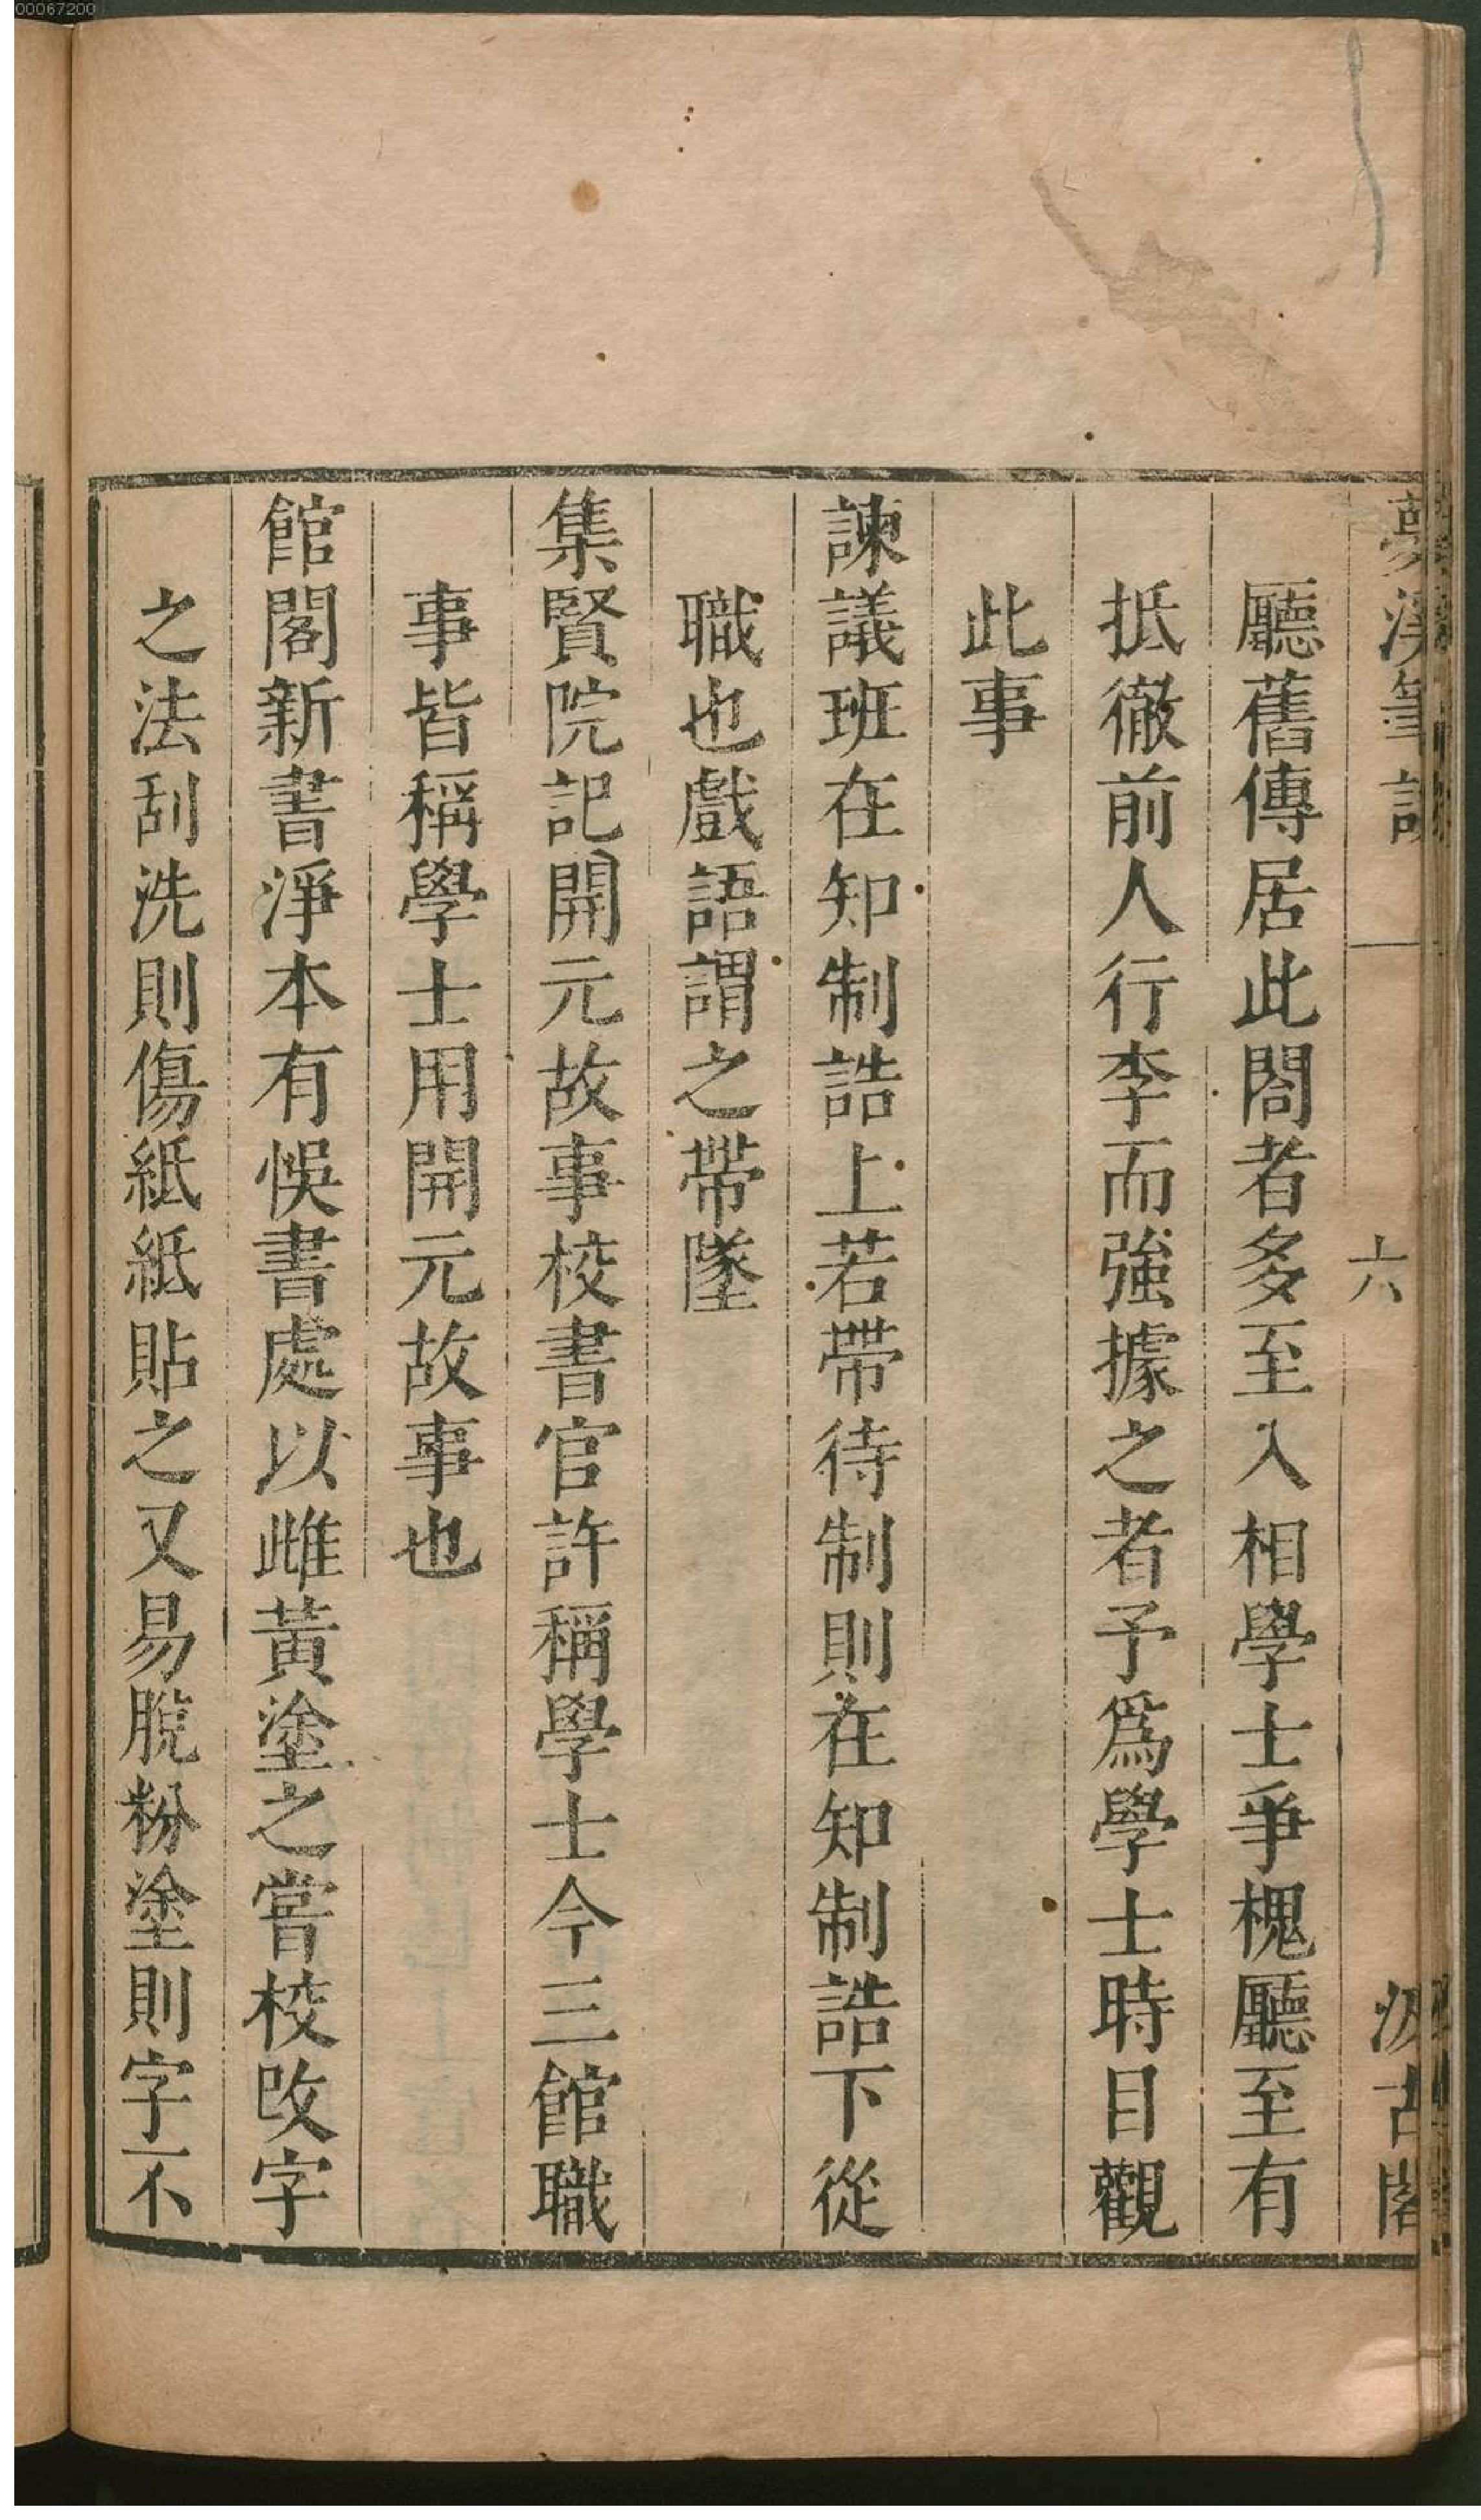 夢溪筆談
六
汲古閣
廳舊傳居此閤者多至入相學士爭槐廳至有
抵徹前人行李而強據之者予爲學士時目觀
此事
諫議班在知制誥上若帶待制則在知制誥下從
職也戲語謂之帶墜
集賢院記開元故事校書官許稱學士今三館職
事皆稱學士用開元故事也
館閣新書淨本有悞書處以雌黃塗之嘗校改字
之法刮洗則傷紙紙貼之又易脫粉塗則字不
00067200